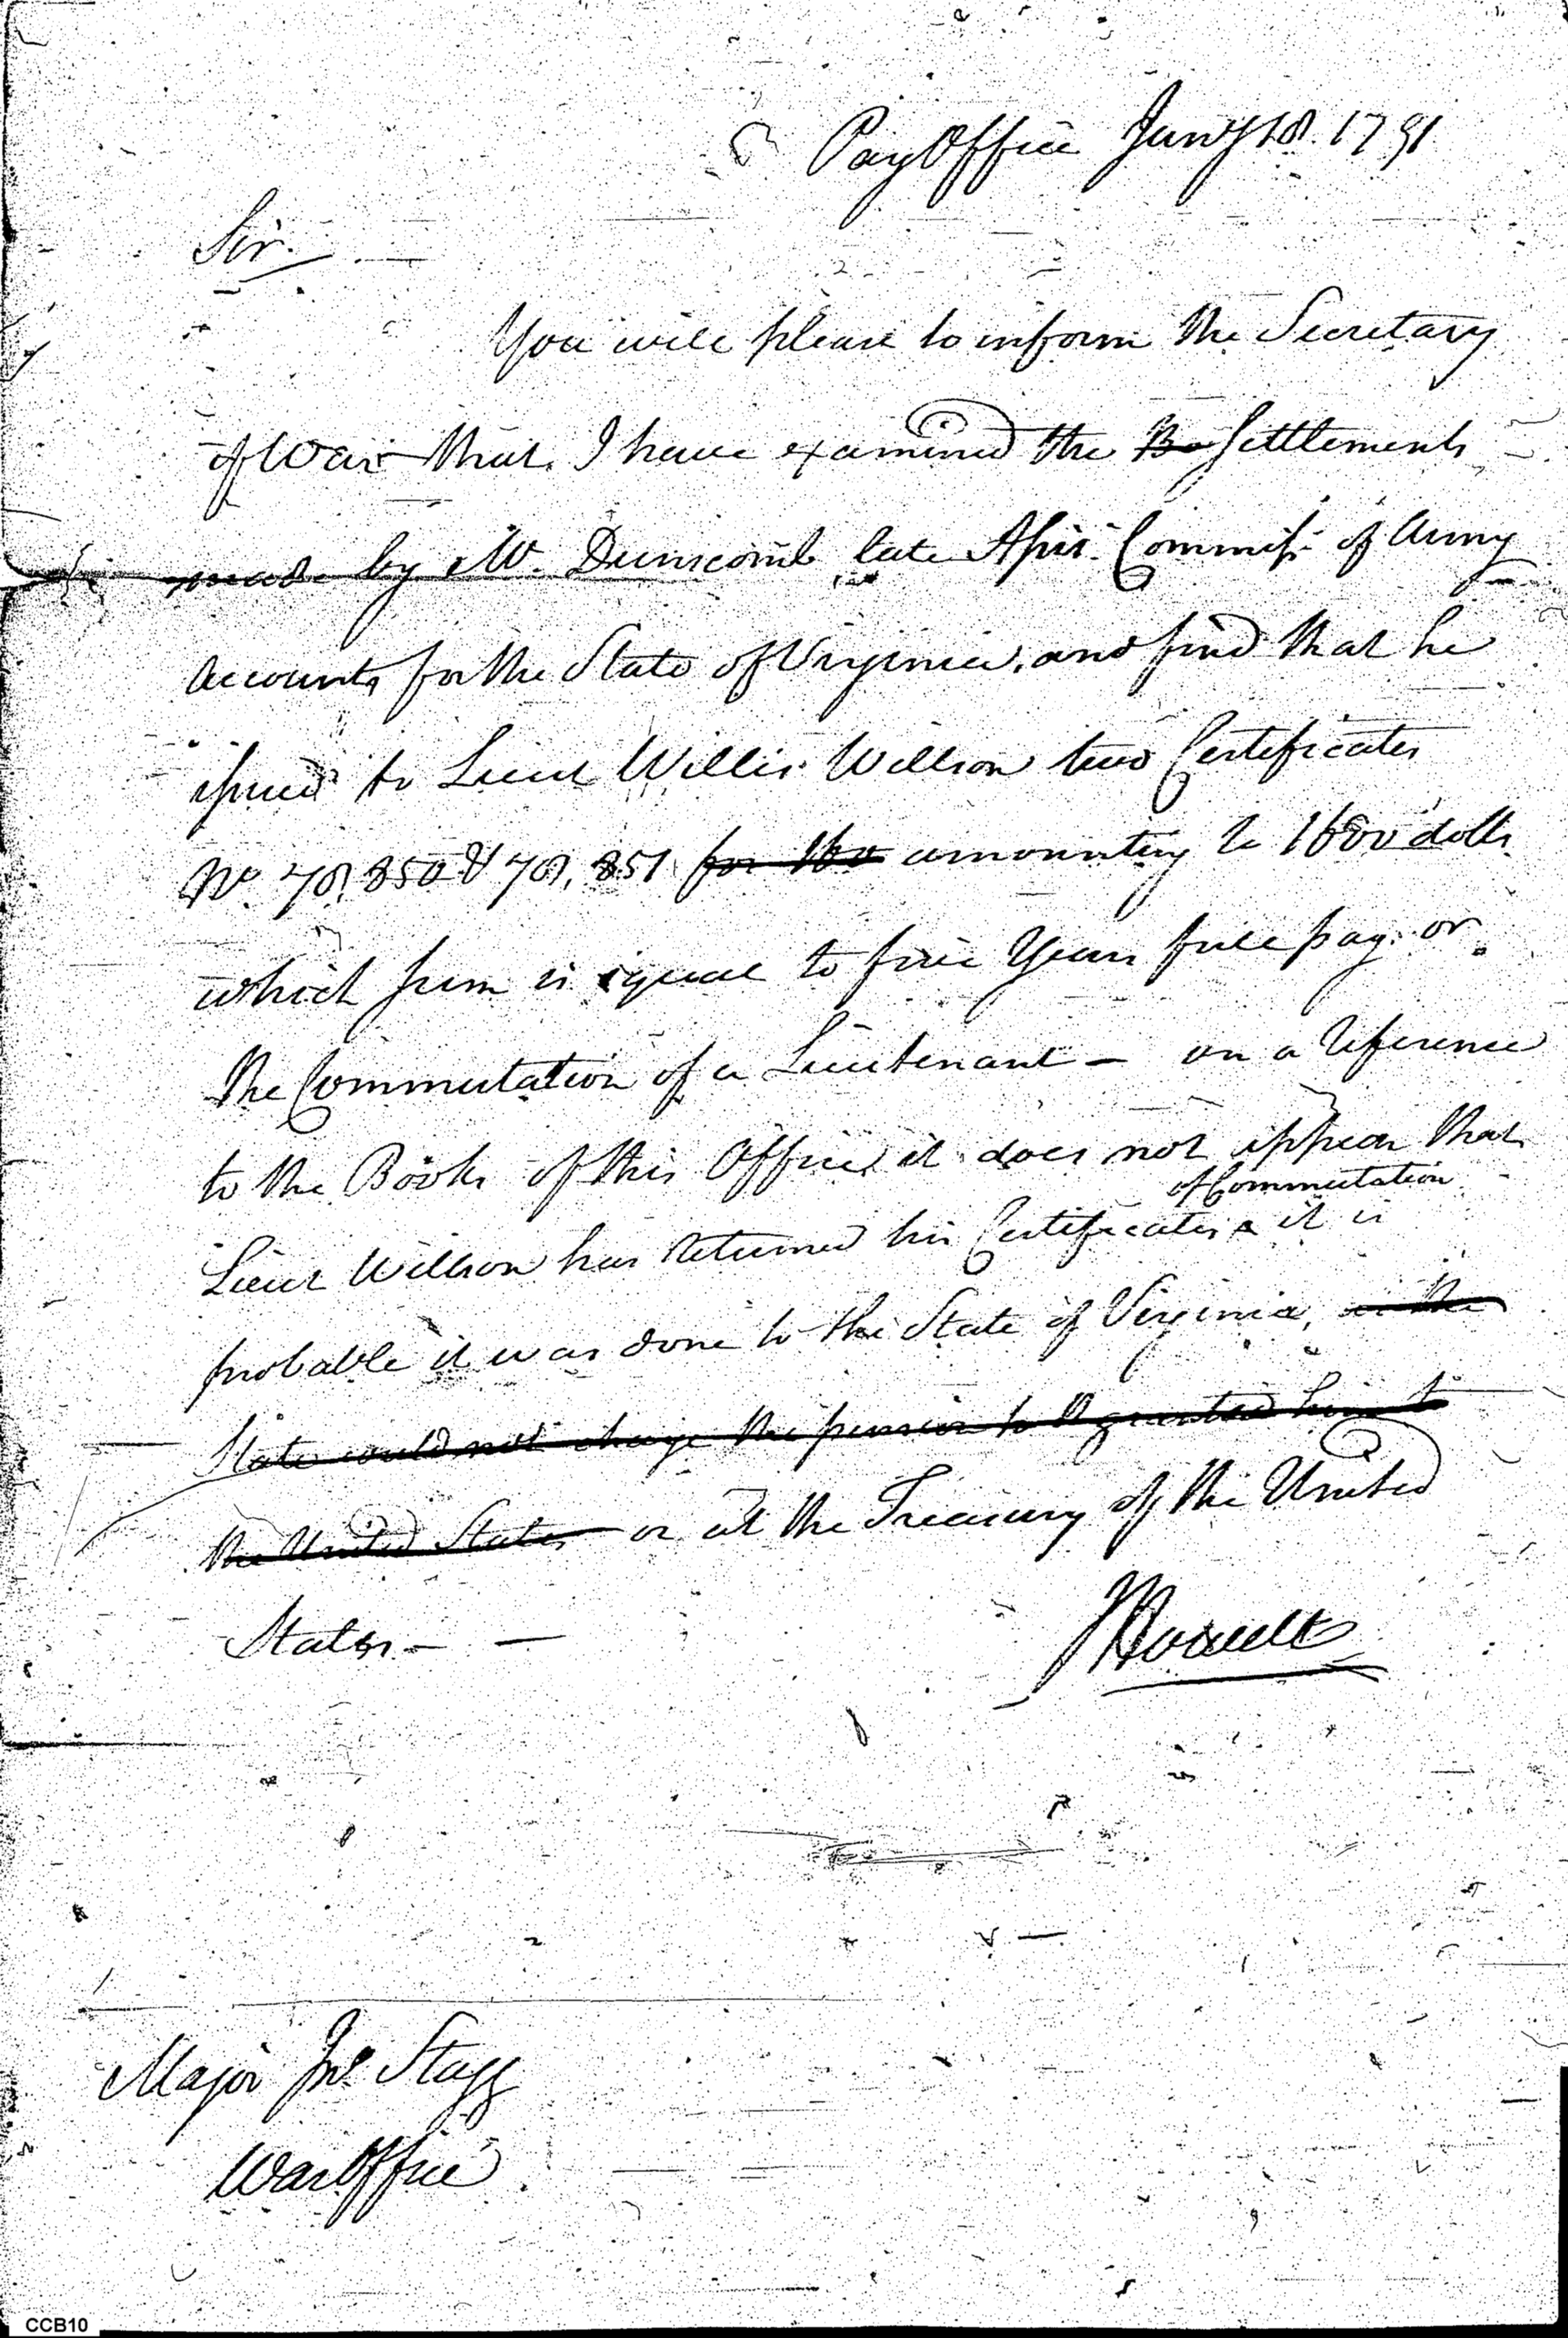 Pay Office Jany 18. 1791
Sir.
You will please to inform the Secretary
of War that I have examined the Be Settlements
made by Mr. Dunscomb late Assis. Commiss. of Army
accounts for the State of Virginia, and find that he
issued to Lieut Willis Willson two Certificates
No. 78,850 & 78,851 for 160 amounting to 1600 dolls
which sum is equal to five Years full pay or
the Commutation of a Lieutenant — on a reference
to the Books of this Office it does not appear that
of Commutation
Lieut Willson has returned his Certificates ^ it is
probable it was done to the State of Virginia, the
State could not charge the pension to be granted him to
the United States or at the Treasury of the United
States — —
J Howell
Major Jno. Stagg
War Office
CCB10